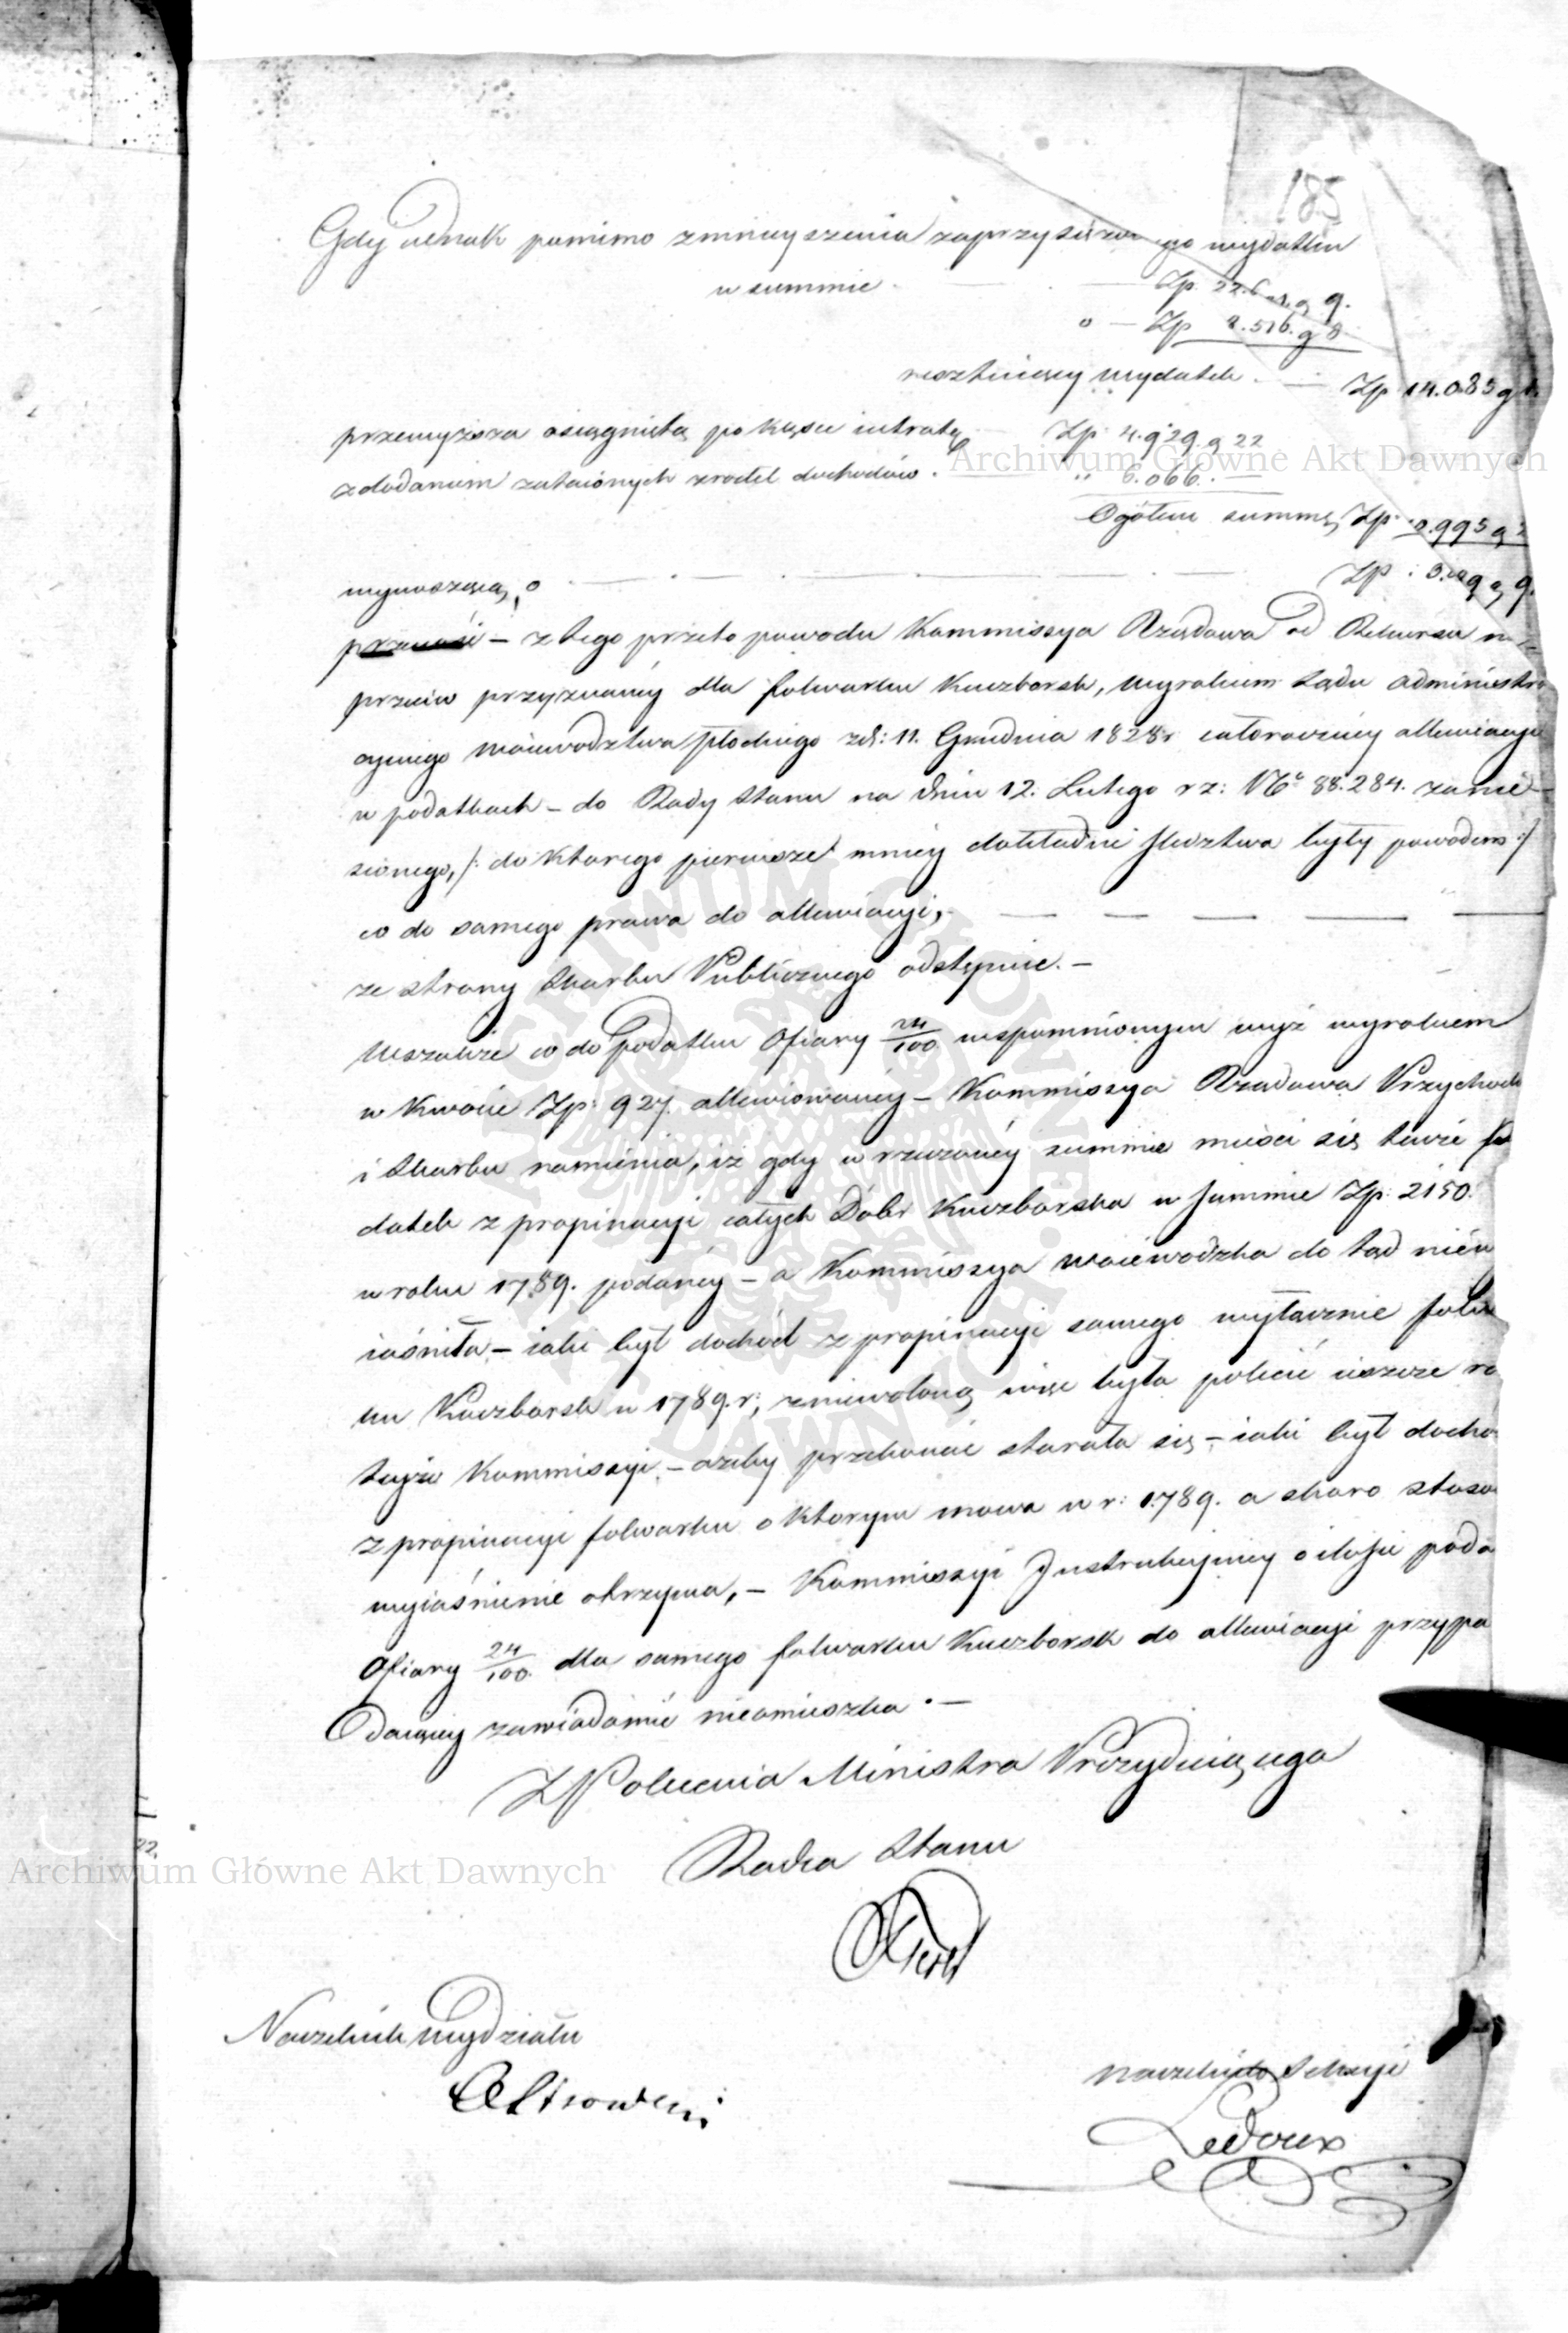 185
Gdy iednak pomimo zmnieyszenia zaprzysiężonego wydatku
w summie Zp. 22. g 9.
o — Zp 8.516. g 8
resztuiący wydatek. — Zp 14.085 g
przewyższa osiągniętą po klęsce intratę Zp: 4.929. g 22
z dodaniem zataionych zrodeł dochodów. „ 6.066. —
Ogółem summę Zp: 10.995 g 2
wynoszącą, o — Zp: 3. g 9.
— z tego przeto powodu Kommissya Rządowa od Rekursu na
przeciw przyznaney dla folwarku Kuczbork, wyrokiem Sądu administra
cyinego Woiewodztwa Płockiego zd: 11. Grudnia 1828 r całoroczney allewiacyi
w podatkach – do Rady Stanu na dniu 12. Lutego r z: No 88.284. zanie
sionego, /: do ktorego pierwsze mniey dokładne śledztwa były powodem :/
co do samego prawa do allewiacyi, —
ze strony Skarbu Publicznego odstępuie. –
Wszakże co do podatku Ofiary 24/100 wspomnionym wyż wyrokiem
w kwocie Zp: 927. allewiowaney – Kommissya Rządowa Przychod
i Skarbu namienia, iż gdy w rzeczoney summie mieści się także po
datek z propinacyi całych Dóbr Kuczborska w summie Zp: 2150.
w roku 1789. podaney – a Kommissya Woiewodzka do tąd niew
iaśniła – iaki był dochód z propinacyi samego wyłącznie folw
ku Kuczbork w 1789. r; zniewoloną więc była polecić ieszcze ra
teyże Kommissyi – ażeby przekonać starała się – iaki był docho
z propinacyi folwarku o ktorym mowa w r: 1789. a skoro stoso
wyiaśnienie otrzyma, – Kommissyi Instrukcyiney o ilości poda
Ofiary 24/100 dla samego folwarku Kuczbork do allewiacyi przypa
daiącey zawiadomić nieomieszka. —
Z Polecenia Ministra Prezyduiącego
Radca Stanu
Naczelnik Wydziału
Naczelnik Sekcyi
Ledoux
Archiwum Główne Akt Dawnych
Archiwum Główne Akt Dawnych
ARCHIWUM GŁÓWNE AKT DAWNYCH